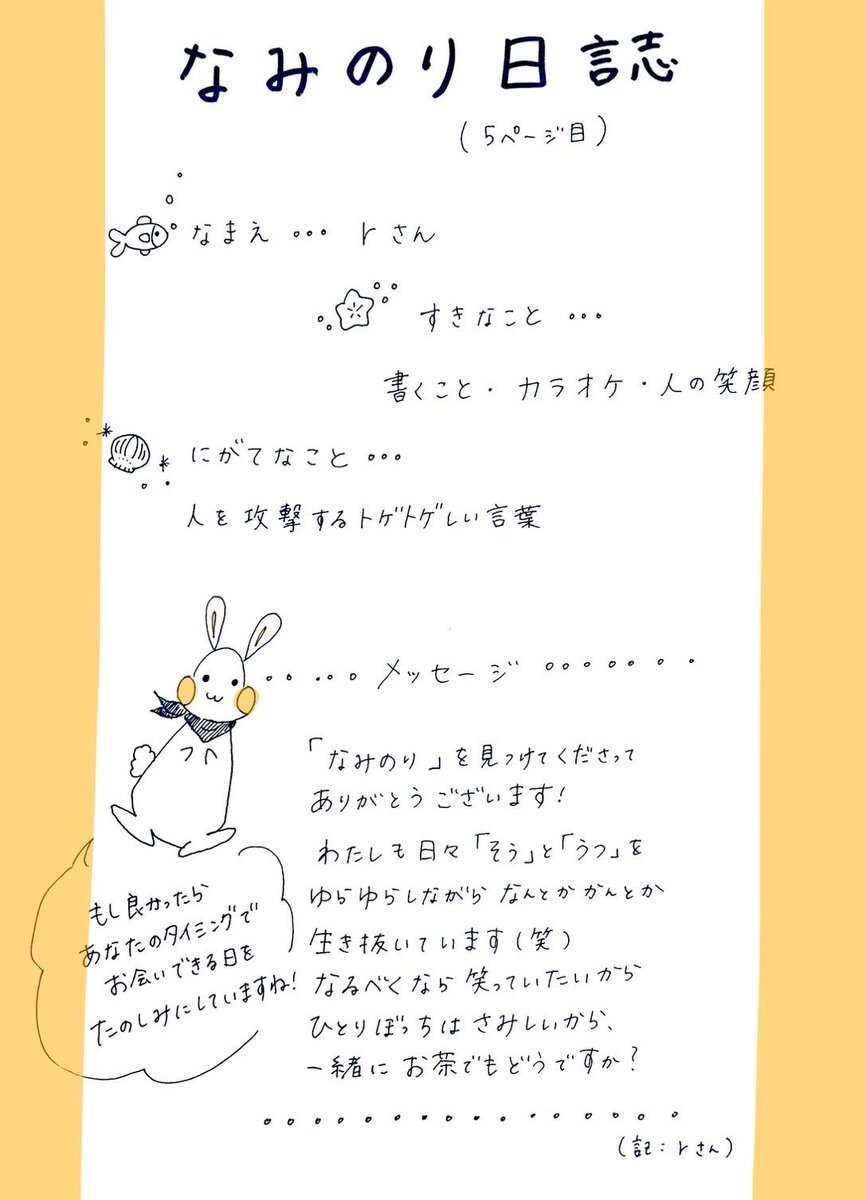 なみのり日誌
(5ページ目)
なまえ ・・・ rさん
すきなこと ・・・
書くこと・カラオケ・人の笑顔
にがてなこと ・・・
人を攻撃するトゲトゲしい言葉
・・・・・ メッセージ ・・・・・・・
「なみのり」を見つけてくださって
ありがとうございます!
わたしも日々「そう」と「うつ」を
ゆらゆらしながら なんとかかんとか
生き抜いています(笑)
なるべくなら 笑っていたいから
ひとりぼっちは さみしいから、
一緒に お茶でもどうですか?
もし良かったら
あなたのタイミングで
お会いできる日を
たのしみにしていますね!
(記:rさん)